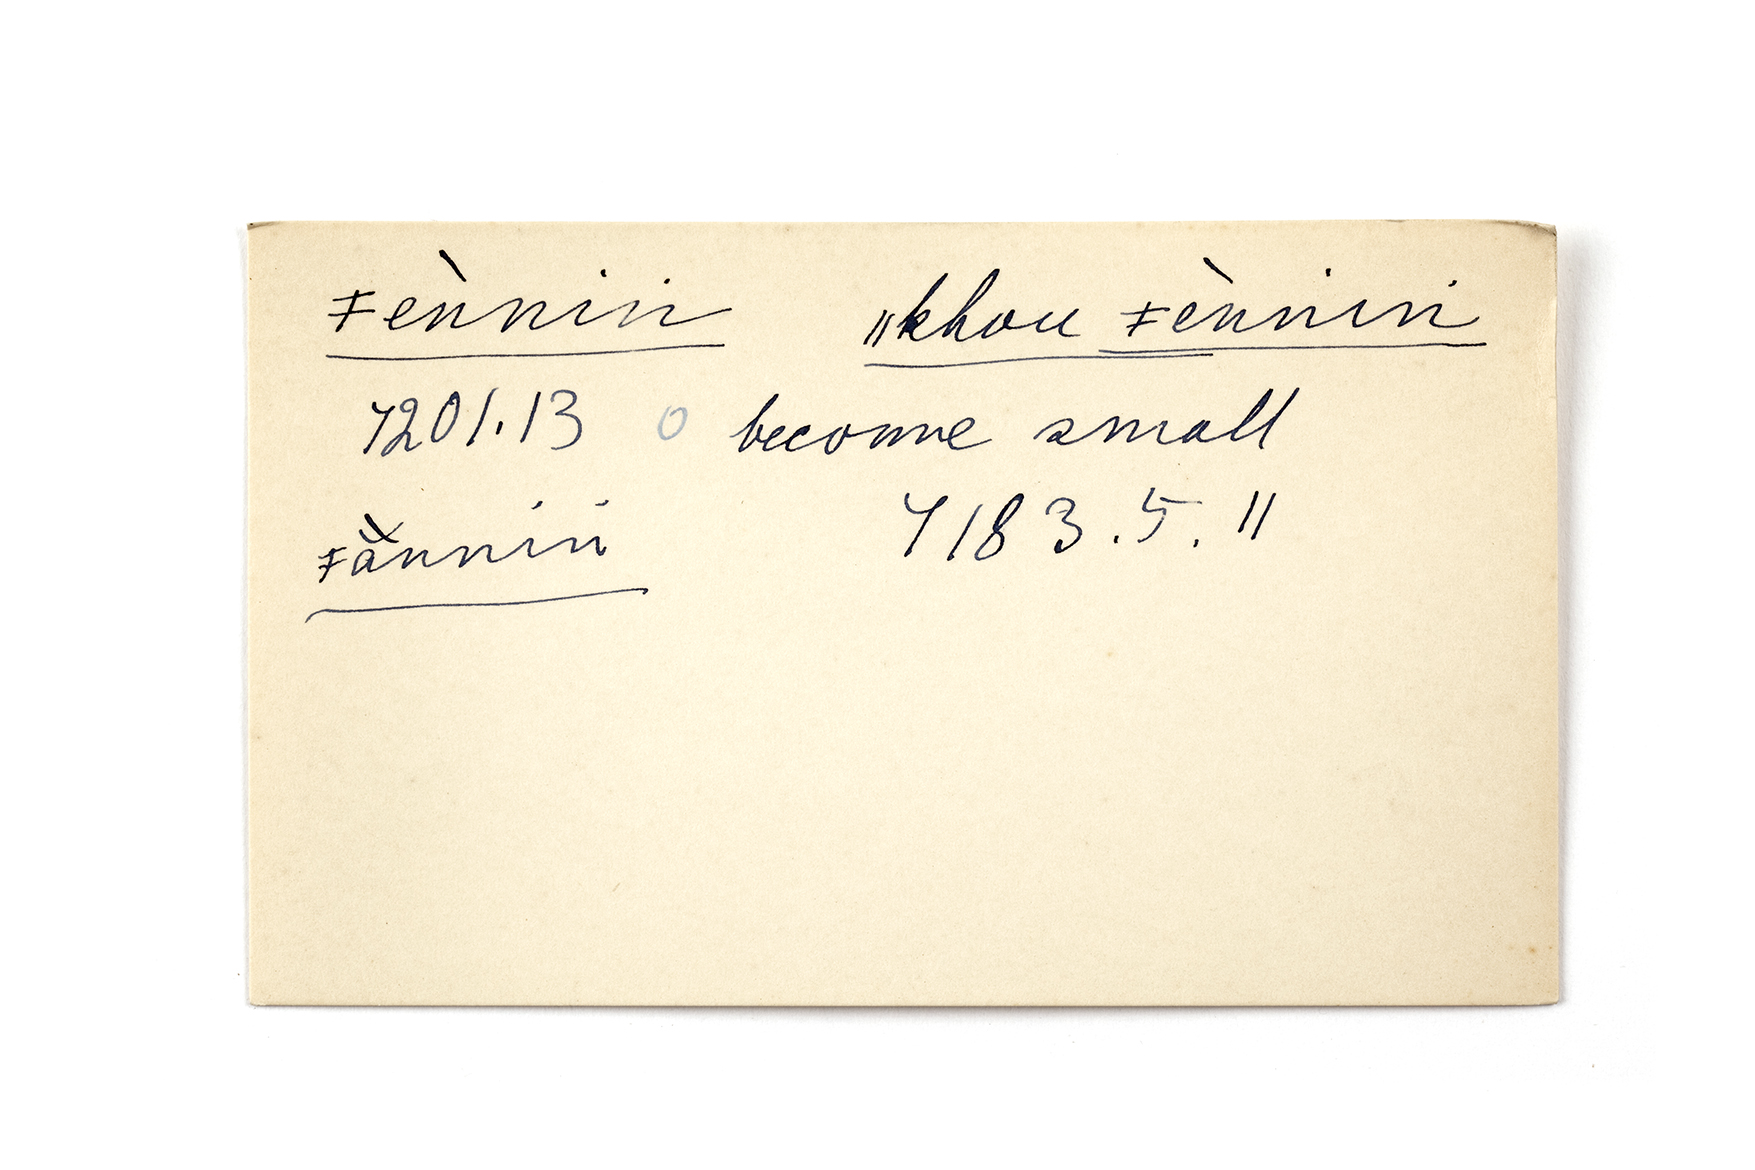 ǂènnin ǁkhou ǂènnin
7201.13 o become small
ǂä̀nnin 7183.5.11